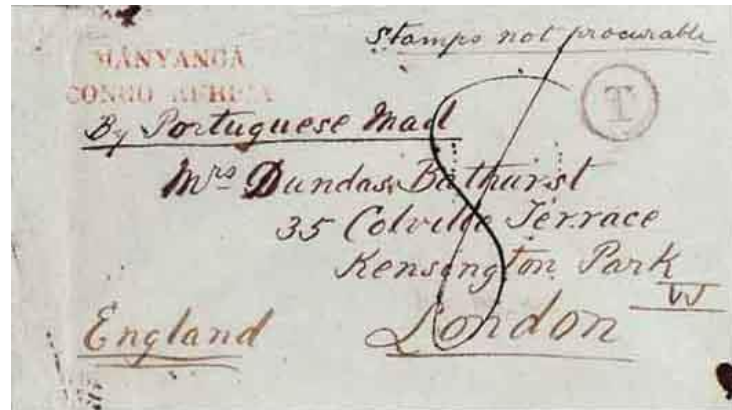 Stamps not procurable
MANYANGA
CONGO
T
By Portuguese Mail
Mrs Dundas Bathurst
35 Colville Terrace
Kensington Park
W
England
London